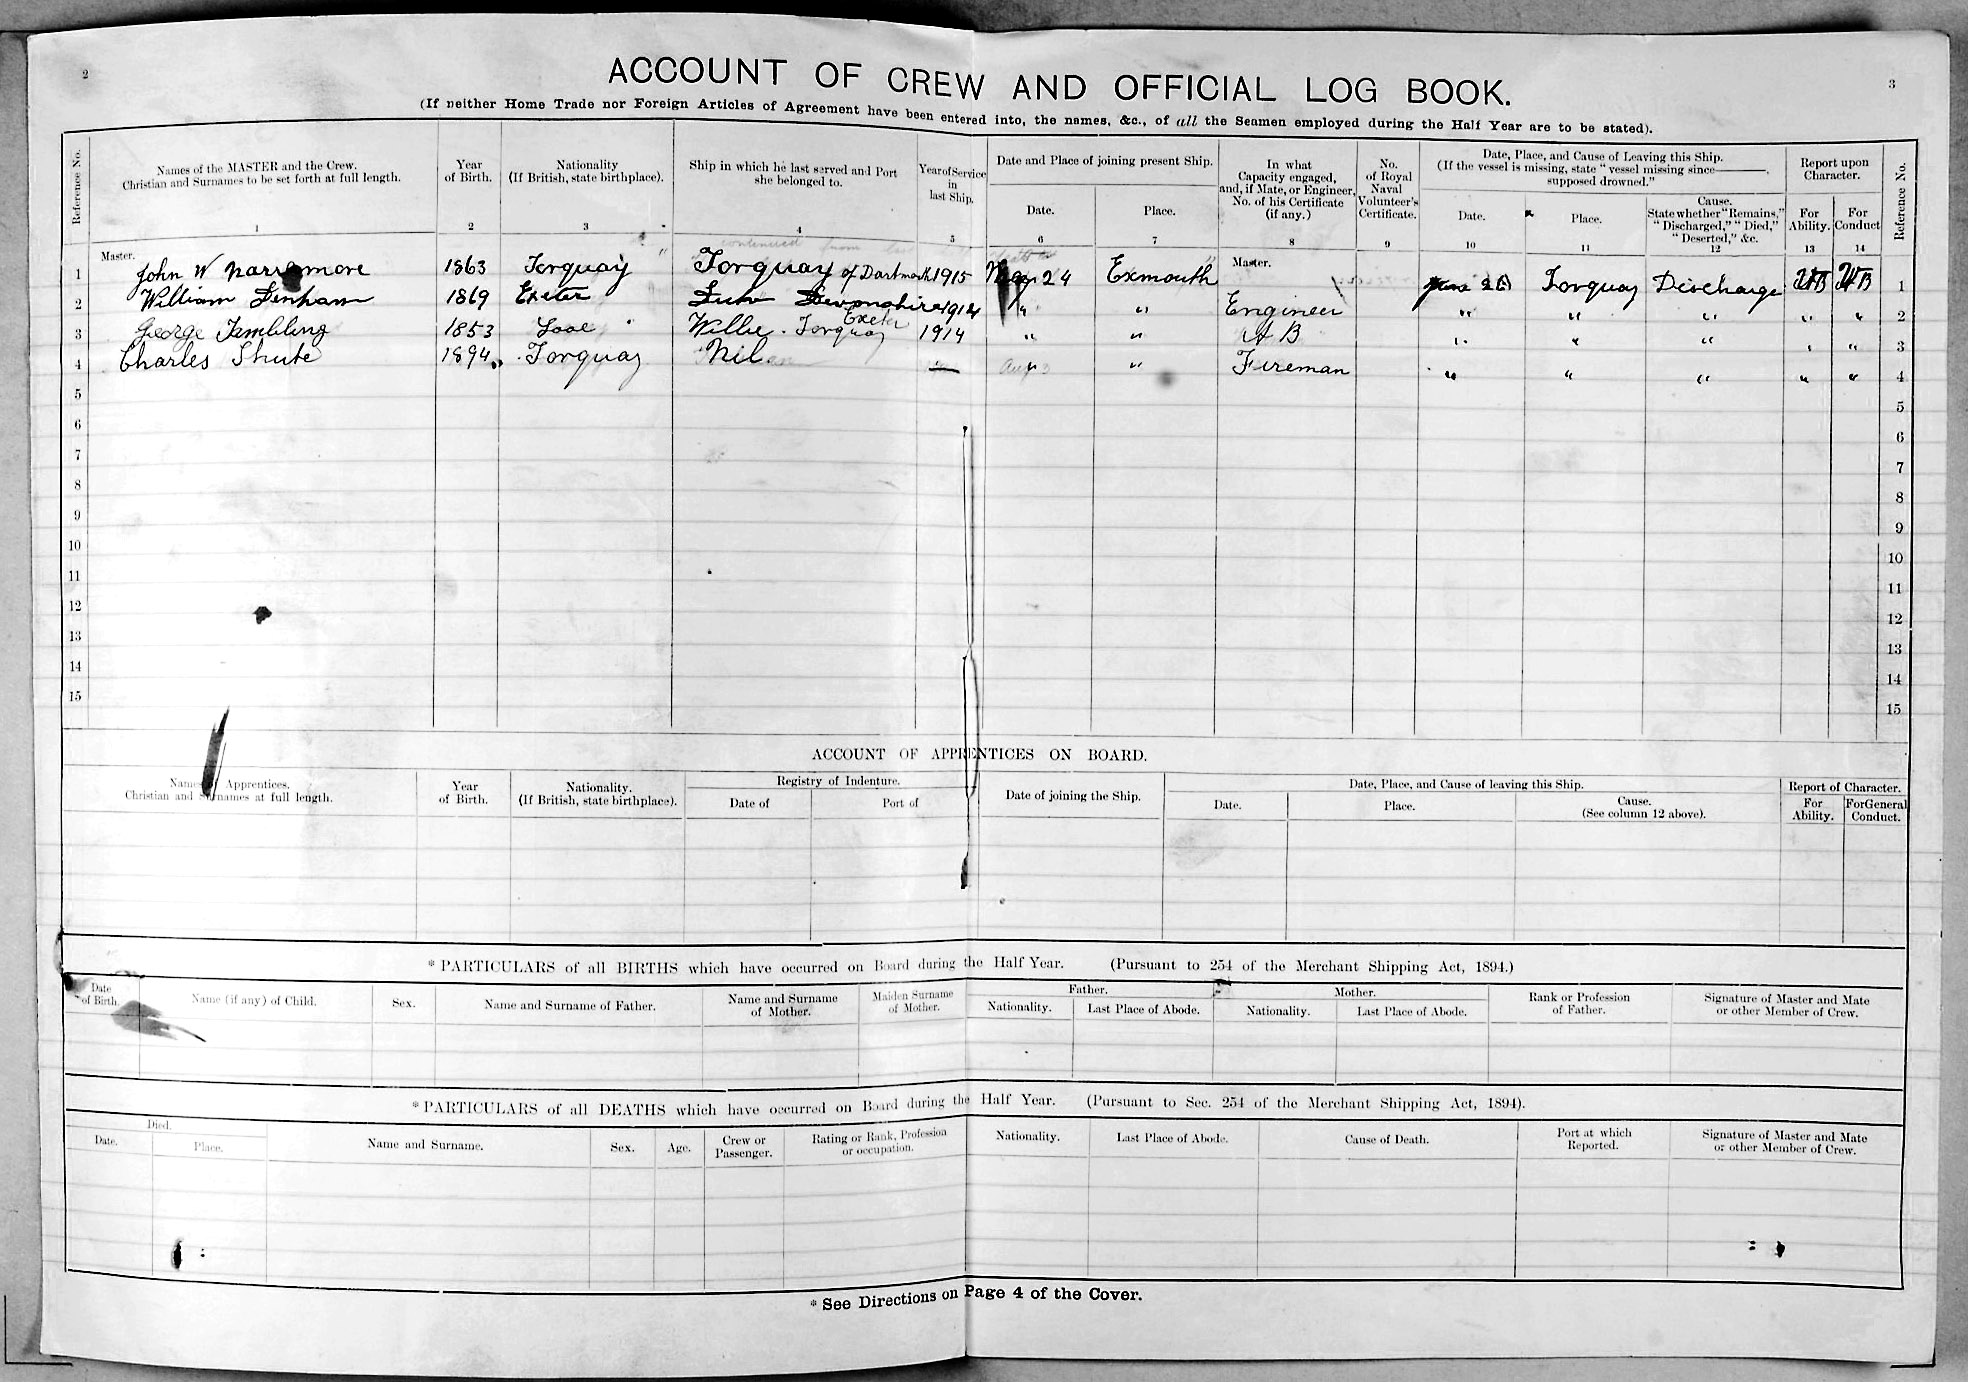 2
3
ACCOUNT OF CREW AND OFFICIAL LOG BOOK.
(If neither Home Trade nor Foreign Articles of Agreement have been entered into, the names, &c., of all the Seamen employed during the Half Year are to be stated).
Reference No.
Names of the MASTER and the Crew.
Christian and Surnames to be set forth at full length.
1
Year
of Birth.
2
Nationality
(If British, state birthplace).
3
Ship in which he last served and Port
she belonged to.
4
Year of Service
in
last Ship.
5
Date and Place of joining present Ship.
Date.
6
Place.
7
In what
Capacity engaged,
and, if Mate, or Engineer,
No. of his Certificate
(if any.)
8
No.
of Royal
Naval
Volunteer's
Certificate.
9
Date, Place, and Cause of Leaving this Ship.
(If the vessel is missing, state "vessel missing since ———,
supposed drowned."
Date.
10
Place.
11
Cause.
State whether "Remains,"
"Discharged," "Died,"
"Deserted," &c.
12
Report upon
Character.
For
Ability.
13
For
Conduct
14
Reference No.
Master.
1 John W Narramore 1863 Torquay Torquay of Dartmouth 1915 24 Exmouth Master. June 26 Torquay Discharge 1
2 William Denham 1869 Exeter Devonshire Exeter 1914 " " Engineer " " " " " 2
3 George Tambling 1853 Looe Willie. Torquay 1914 " " AB " " " " " 3
4 Charles Shute 1894 Torquay Nil — " " Fireman " " " " " 4
5 5
6 6
7 7
8 8
9 9
10 10
11 11
12 12
13 13
14 14
15 15
ACCOUNT OF APPRENTICES ON BOARD.
Names Apprentices.
Christian and Surnames at full length.
Year
of Birth.
Nationality.
(If British, state birthplace).
Registry of Indenture.
Date of
Port of
Date of joining the Ship.
Date, Place, and Cause of leaving this Ship.
Date.
Place.
Cause.
(See column 12 above).
Report of Character.
For
Ability.
For General
Conduct.
*PARTICULARS of all BIRTHS which have occurred on Board during the Half Year. (Pursuant to 254 of the Merchant Shipping Act, 1894.)
Date
of Birth.
Name (if any) of Child.
Sex.
Name and Surname of Father.
Name and Surname
of Mother.
Maiden Surname
of Mother.
Father.
Nationality.
Last Place of Abode.
Mother.
Nationality.
Last Place of Abode.
Rank or Profession
of Father.
Signature of Master and Mate
or other Member of Crew.
*PARTICULARS of all DEATHS which have occurred on Board during the Half Year. (Pursuant to Sec. 254 of the Merchant Shipping Act, 1894).
Died.
Date.
Place.
Name and Surname.
Sex.
Age.
Crew or
Passenger.
Rating or Rank, Profession
or occupation.
Nationality.
Last Place of Abode.
Cause of Death.
Port at which
Reported.
Signature of Master and Mate
or other Member of Crew.
* See Directions on Page 4 of the Cover.